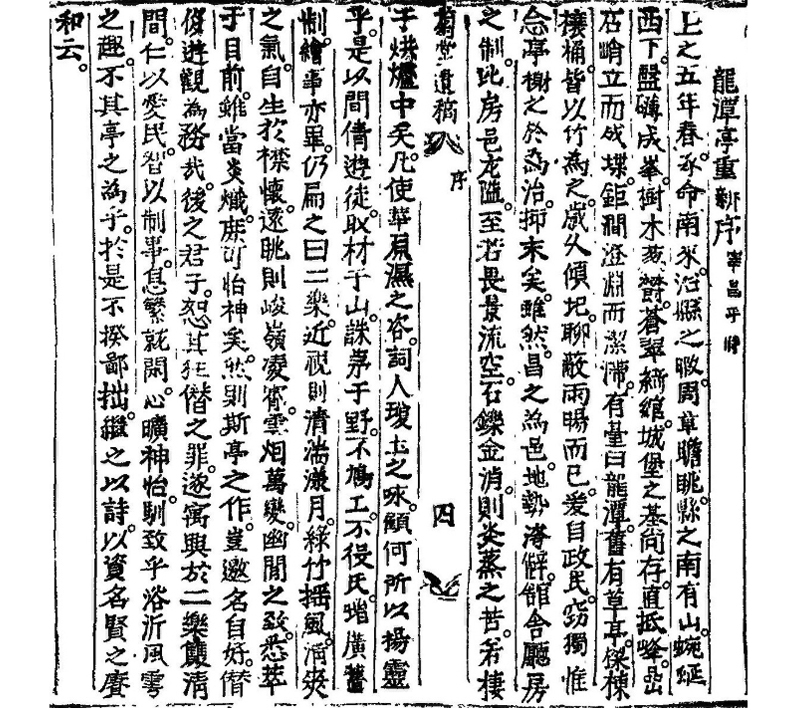 龍潭亭重新序 宰昌平時
上之五年春承命南來治縣之暇周章瞻眺縣之南有山蜿蜒
西下盤礴成峯樹木蓊鬱蒼翠締綰城堡之基尙存直抵峰岊
石峭立而成堞鉅澗澄淵而潔滯有臺曰龍潭舊有草亭榱棟
榱桷皆以竹爲之歲久傾圮聊蔽雨暘而已爰自政民窃獨惟
念亭榭之於爲治抑末矣雖然昌之爲邑地勢海僻館舍廳房
之制比房邑尤隘至若畏景流空石鑠金消則炎蒸之苦若棲
蘭堂遺稿 序 四
于烘爐中矣凡使華原濕之咨詞人瓊土之咏顧何所以揚靈
乎是以間倩遊徒取材于山誅茅于野不鳩工不役氏增廣舊
制繪事亦畢仍扁之曰二樂近視則淸湍漾月綠竹搖風洒爽
之氣自生於襟懷遠眺則峻嶺凌霄雲烟萬變幽閒之致悉萃
于目前雖當炎熾庶可怡神矣然則斯亭之作豈邀名自好僭
後遊觀爲務哉後之君子恕其狂僭之罪遂寓興於二樂雙淸
間仁以愛民智以制事息繁就閑心曠神怡馴致乎浴沂風雩
之趣不其亭之爲乎於是不揆鄙拙繼之以詩以資名賢之賡
和云